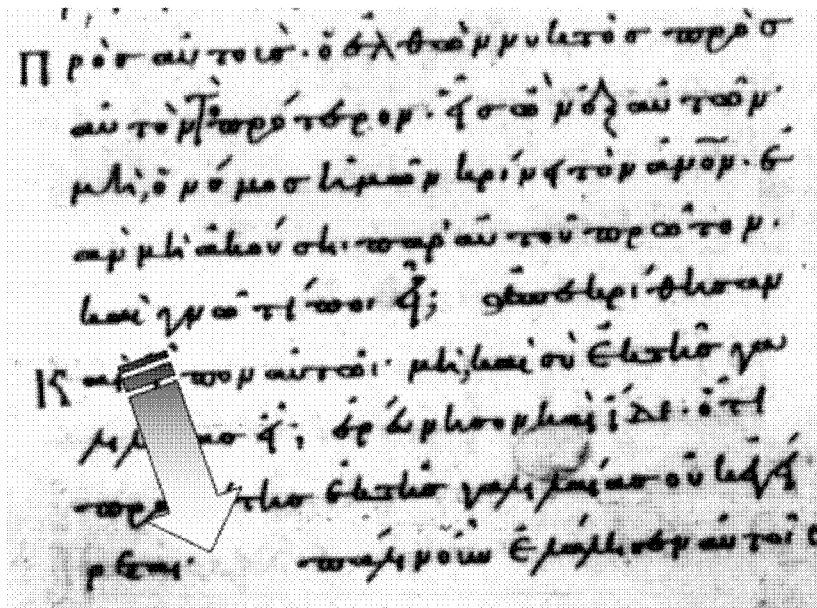 Πρὸς αὐτούς· ὁ ἐλθὼν νυκτὸς πρὸς
αὐτὸν τὸ πρότερον· εἷς ὢν ἐξ αὐτῶν·
μὴ ὁ νόμος ἡμῶν κρίνει τὸν ἄνον· ἐ
ὰν μὴ ἀκούσῃ παρ' αὐτοῦ πρῶτον·
καὶ γνῷ τί ποιεῖ; ἀπεκρίθησαν
Καὶ αὐτῷ· μὴ καὶ σὺ ἐκ τῆς γα
εἶ; ἐρεύνησον καὶ ἴδε· ὅτι
ἐκ τῆς γαλιλαίας οὐκ ἐγεί
ρεται· πάλιν οὖν ἐλάλησεν αὐτοῖς ὁ